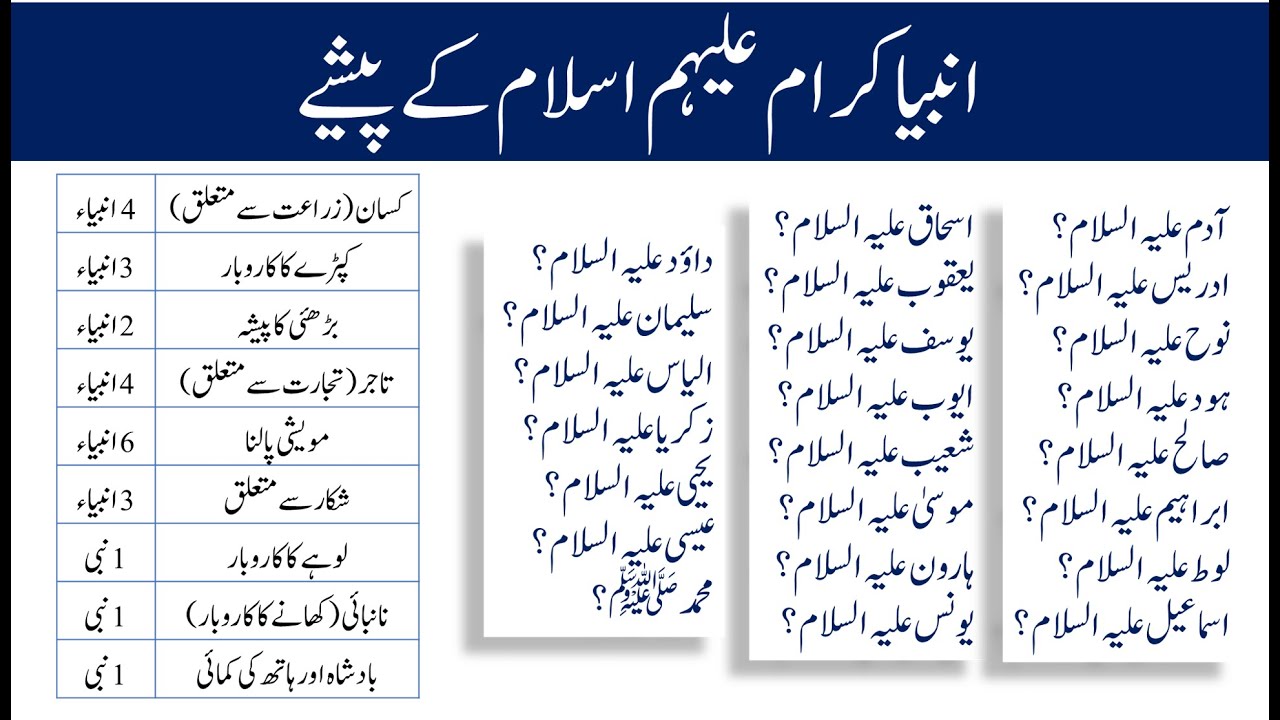 انبیا کرام علیہم اسلام کے پیشیے
آدم علیہ السلام؟
ادریس علیہ السلام؟
نوح علیہ السلام؟
ہود علیہ السلام؟
صالح علیہ السلام؟
ابراہیم علیہ السلام؟
لوط علیہ السلام؟
اسماعیل علیہ السلام؟
اسحاق علیہ السلام؟
یعقوب علیہ السلام؟
یوسف علیہ السلام؟
ایوب علیہ السلام؟
شعیب علیہ السلام؟
موسیٰ علیہ السلام؟
ہارون علیہ السلام؟
یونس علیہ السلام؟
داؤد علیہ السلام؟
سلیمان علیہ السلام؟
الیاس علیہ السلام؟
زکریا علیہ السلام؟
یحیی علیہ السلام؟
عیسی علیہ السلام؟
محمد ﷺ؟
کسان (زراعت سے متعلق) 4 انبیاء
کپڑے کا کاروبار 3 انبیاء
بڑھئی کا پیشہ 2 انبیاء
تاجر (تجارت سے متعلق) 4 انبیاء
مویشی پالنا 6 انبیاء
شکار سے متعلق 3 انبیاء
لوہے کا کاروبار 1 نبی
نانبائی (کھانے کا کاروبار) 1 نبی
بادشاہ اور ہاتھ کی کمائی 1 نبی